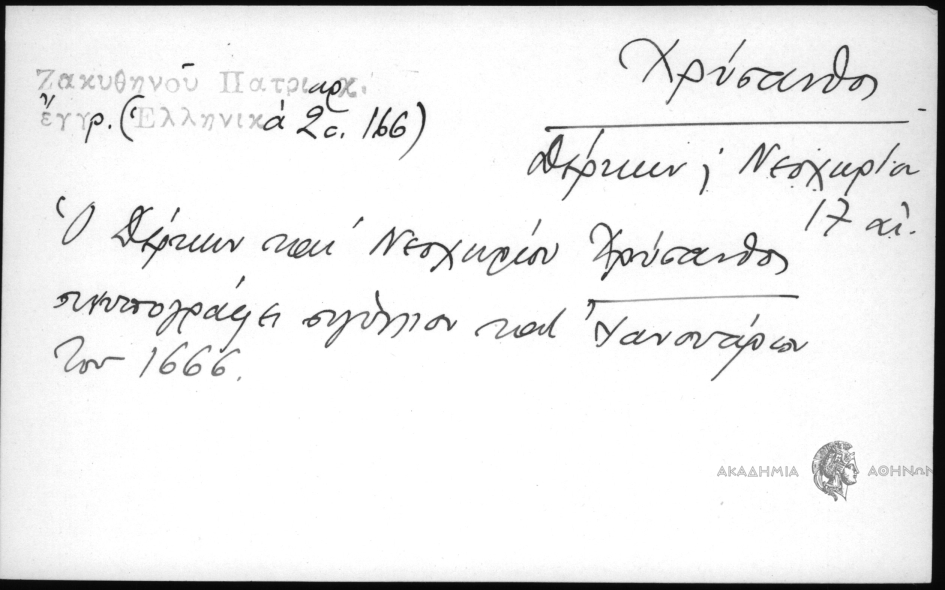 Ζακυθηνοῦ Πατριαρχ.
ἔγγρ. (Ἑλληνικὰ 2c. 166)
Χρύσανθος
Δέρκων ; Νεοχωρίου
17 αἰ.
Ὁ Δέρκων καὶ Νεοχωρίου Χρύσανθος
συνυπογράφει σιγίλλιον κατ' Ἰανουάριον
τοῦ 1666.
ΑΚΑΔΗΜΙΑ ΑΘΗΝΩΝ